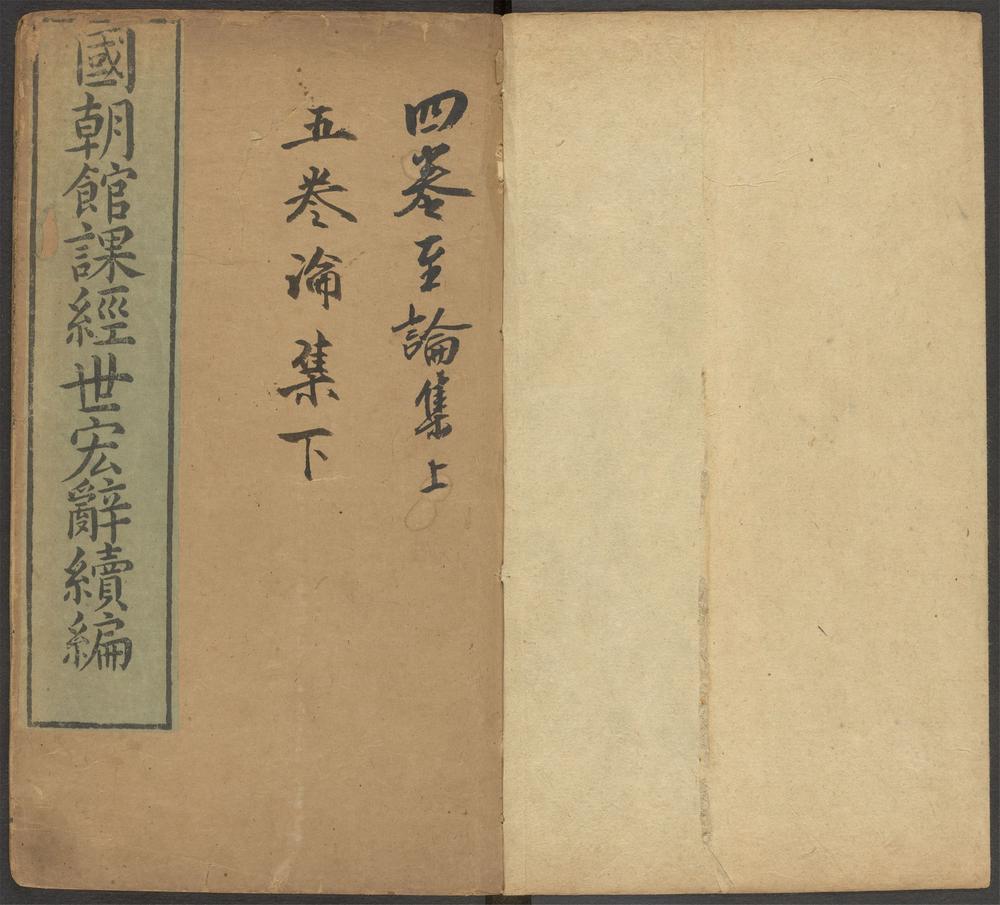 四卷至論集上
五卷論集下
國朝館課經世宏辭續編